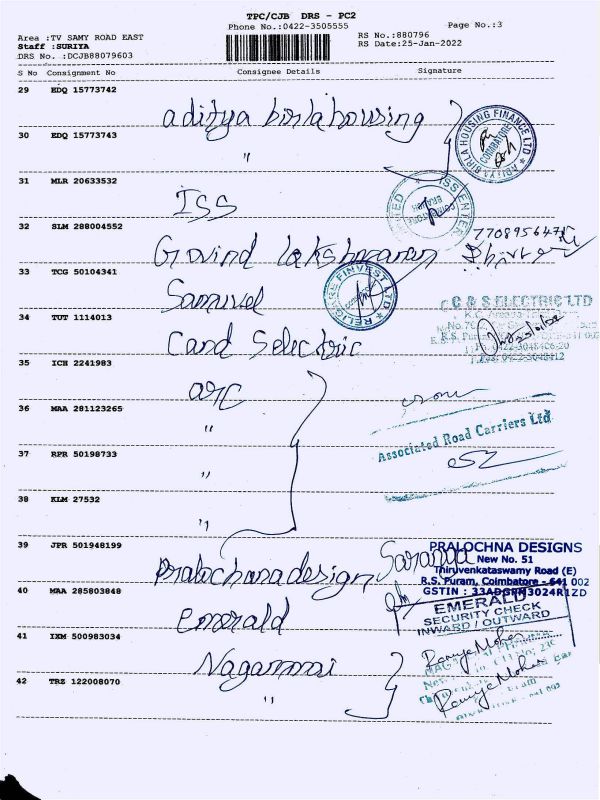 TPC/CJB DRS - PC2
Phone No.:0422-3505555
Page No.:3
Area :TV SAMY ROAD EAST
RS No.:880796
Staff :SURIYA
RS Date:25-Jan-2022
DRS No. :DCJB88079603
S No Consignment No Consignee Details Signature
29 EDQ 15773742
aditya birla housing
ADITYA BIRLA HOUSING FINANCE LTD
COIMBATORE
30 EDQ 15773743
"
31 MLR 20633532
ISS
32 SLM 288004552
Govind Lakshmanan
33 TCG 50104341
Samuvel
RELIGARE FINVEST LTD
34 TUT 1114013
Cand Selectric
C & S ELECTRIC LTD
35 ICH 2241983
arc
36 MAA 281123265
"
Associated Road Carriers Ltd
37 RPR 50198733
"
38 KLM 27532
"
39 JPR 501948199
Pralochana design
Saranya
PRALOCHNA DESIGNS
New No. 51
Thiruvenkataswamy Road (E)
R.S. Puram, Coimbatore - 641 002
GSTIN : 33ADGPM3024R1ZD
40 MAA 285803848
Emerald
EMERALD
SECURITY CHECK
INWARD / OUTWARD
41 IXM 500983034
Nagammai
42 TRZ 122008070
"